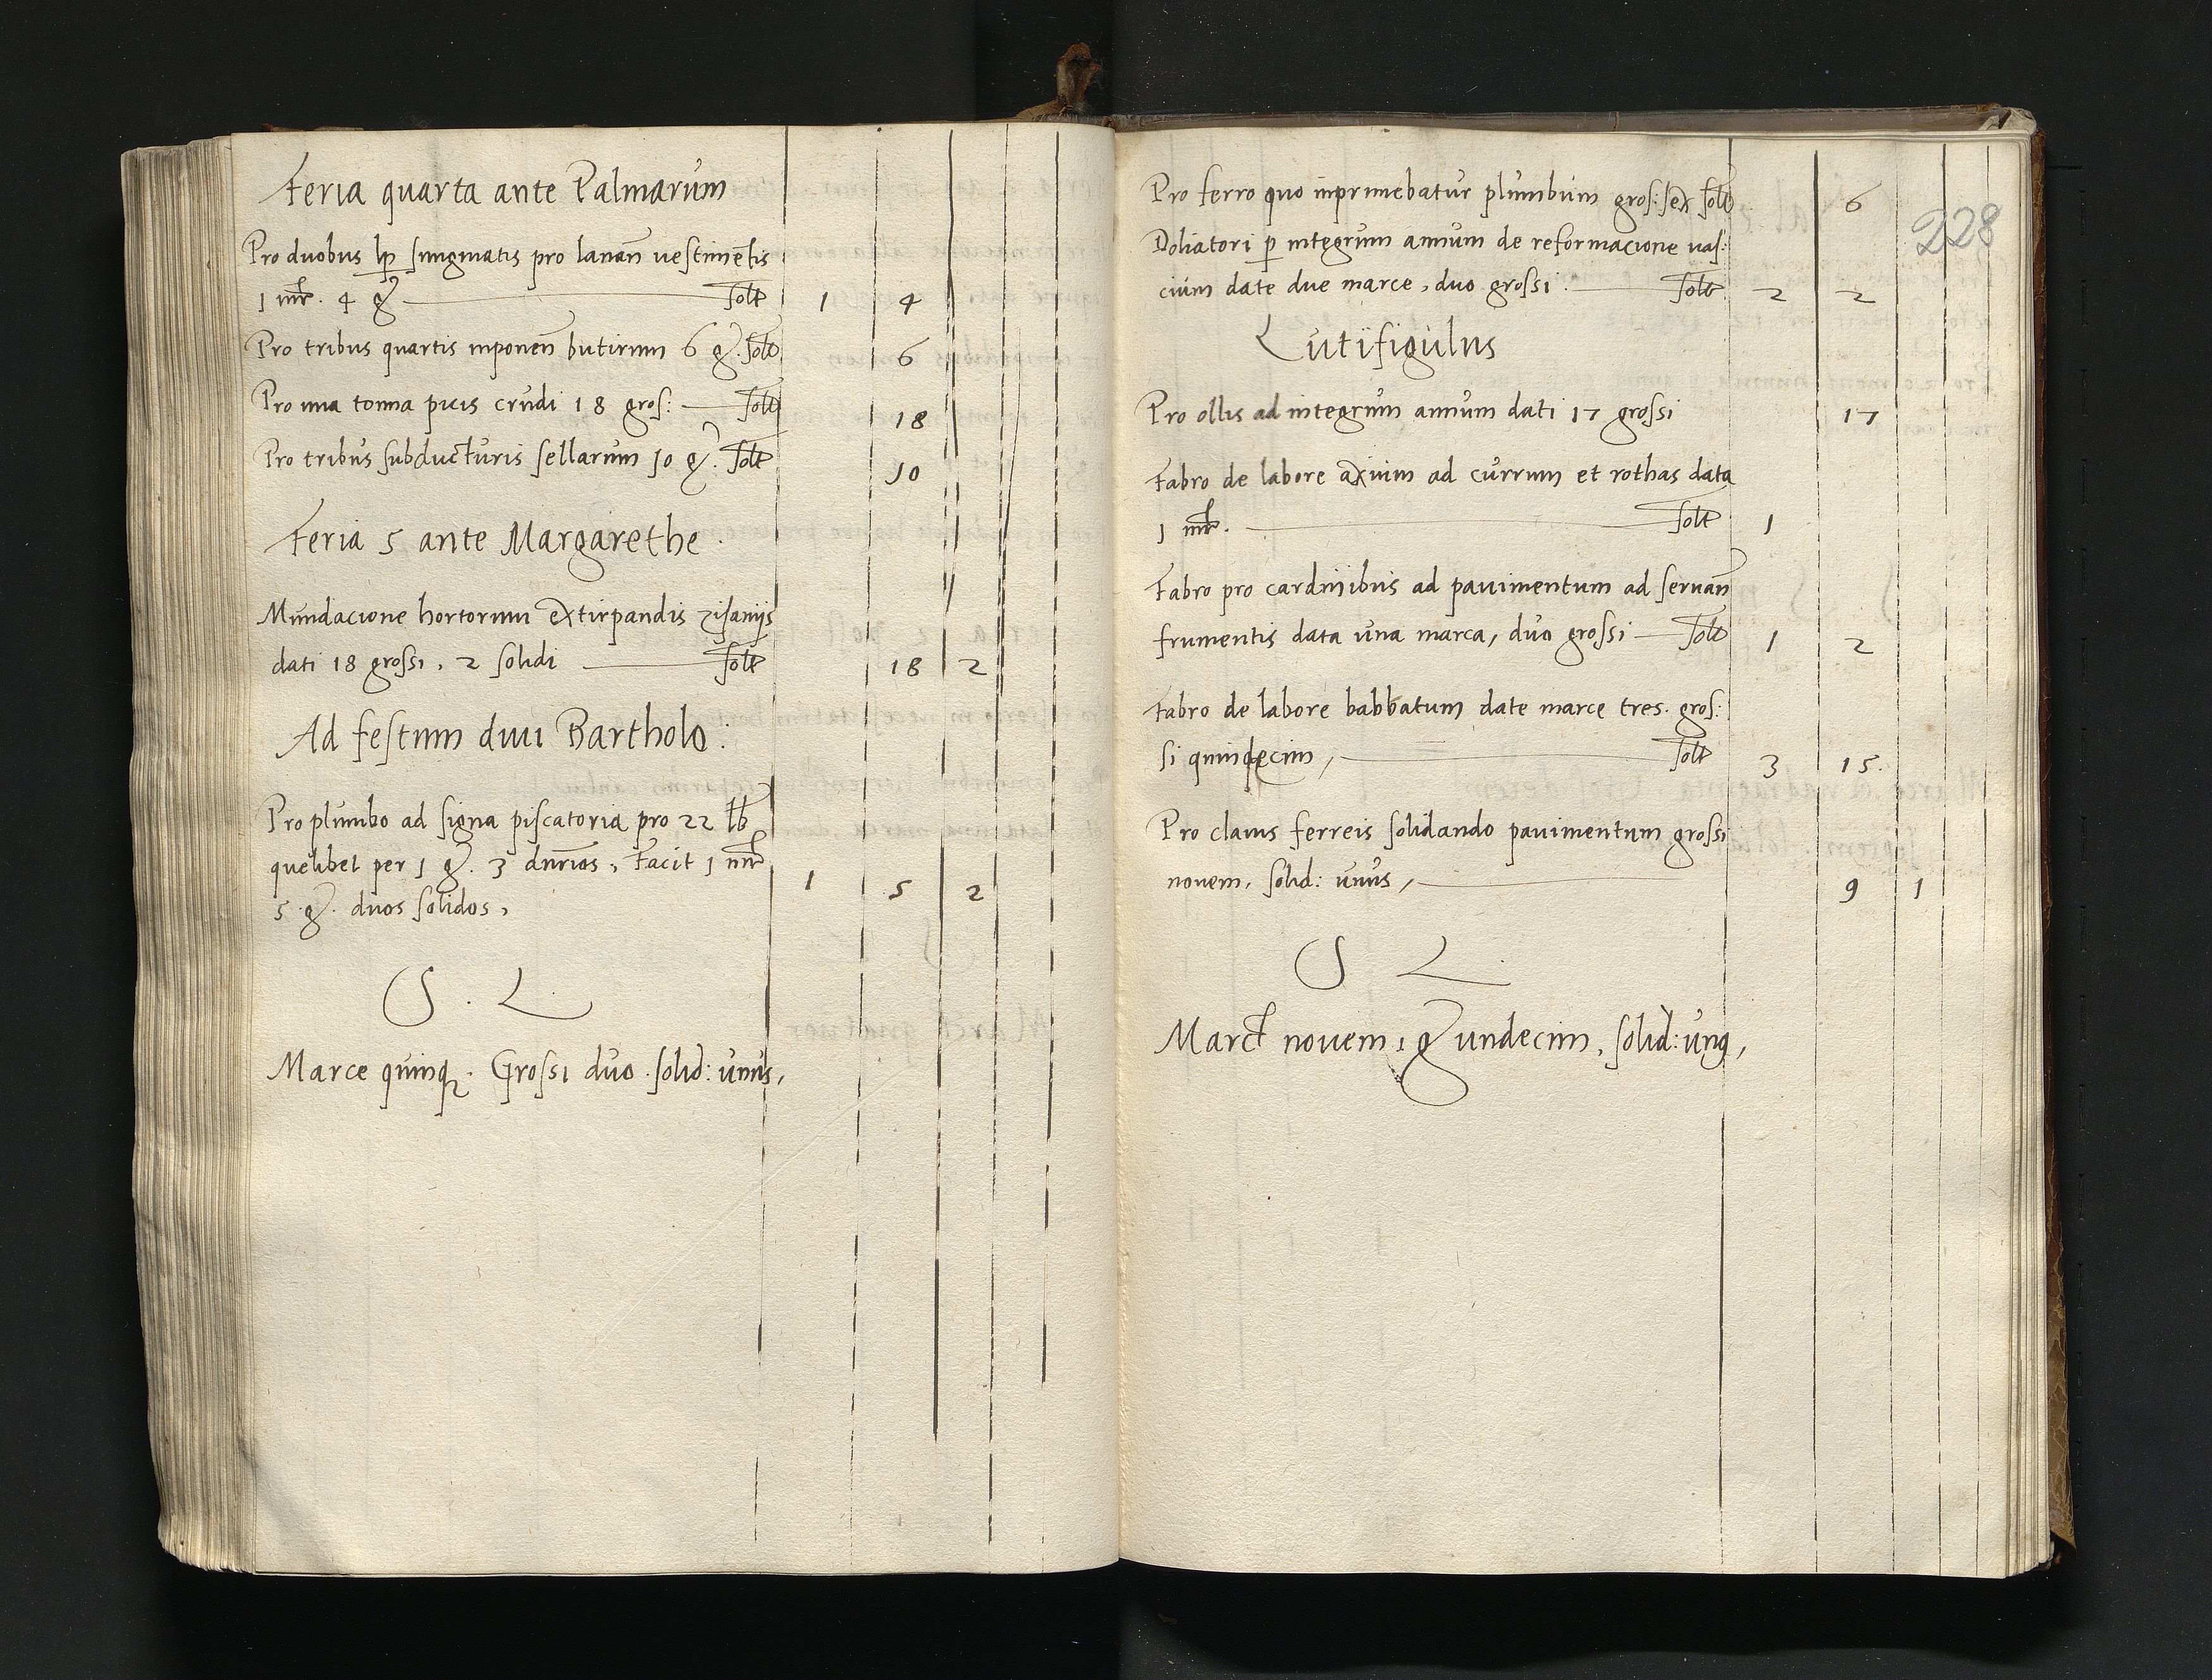 Feria quarta ante Palmarum
Pro duobus lp smigmatis pro lanan̄ vestimētis
1 mr. 4 g solt 1 4
Pro tribus quartis inponen̄ butirum 6 g. solt 6
Pro una tonna picis crudi 18 gros: solt 18
Pro tribus subducturis sellarum 10 g. solt 10
Feria 5 ante Margarethe.
Mundacione hortorum extirpandis zisaniis
dati 18 grossi, 2 solidi solt 18 2
Ad festum divi Bartholo:
Pro plumbo ad signa piscatoria pro 22 lb
quelibet per 1 g. 3 dnrios, Facit 1 mr
5 g. duos solidos, 1 5 2
S. L.
Marce quinq. Grossi duo. solid: unus,
228
Pro ferro quo inprimebatur plumbum gros: sex solt 6
Doliatori p integrum annum de reformacione vas:
cium date due marce, duo grossi. solt 2 2
Lutifigulus
Pro ollis ad integrum annum dati 17 grossi 17
Fabro de labore axium ad currum et rothas data
1 mr. solt 1
Fabro pro cardinibus ad pavimentum ad servan̄
frumentis data una marca, duo grossi solt 1 2
Fabro de labore babbatum date marce tres. gros:
si quindecim, solt 3 15.
Pro clavis ferreis solidando pavimentum grossi
novem, solid: unus, 9 1
S L.
Marc novem, g undecim, solid: unq,